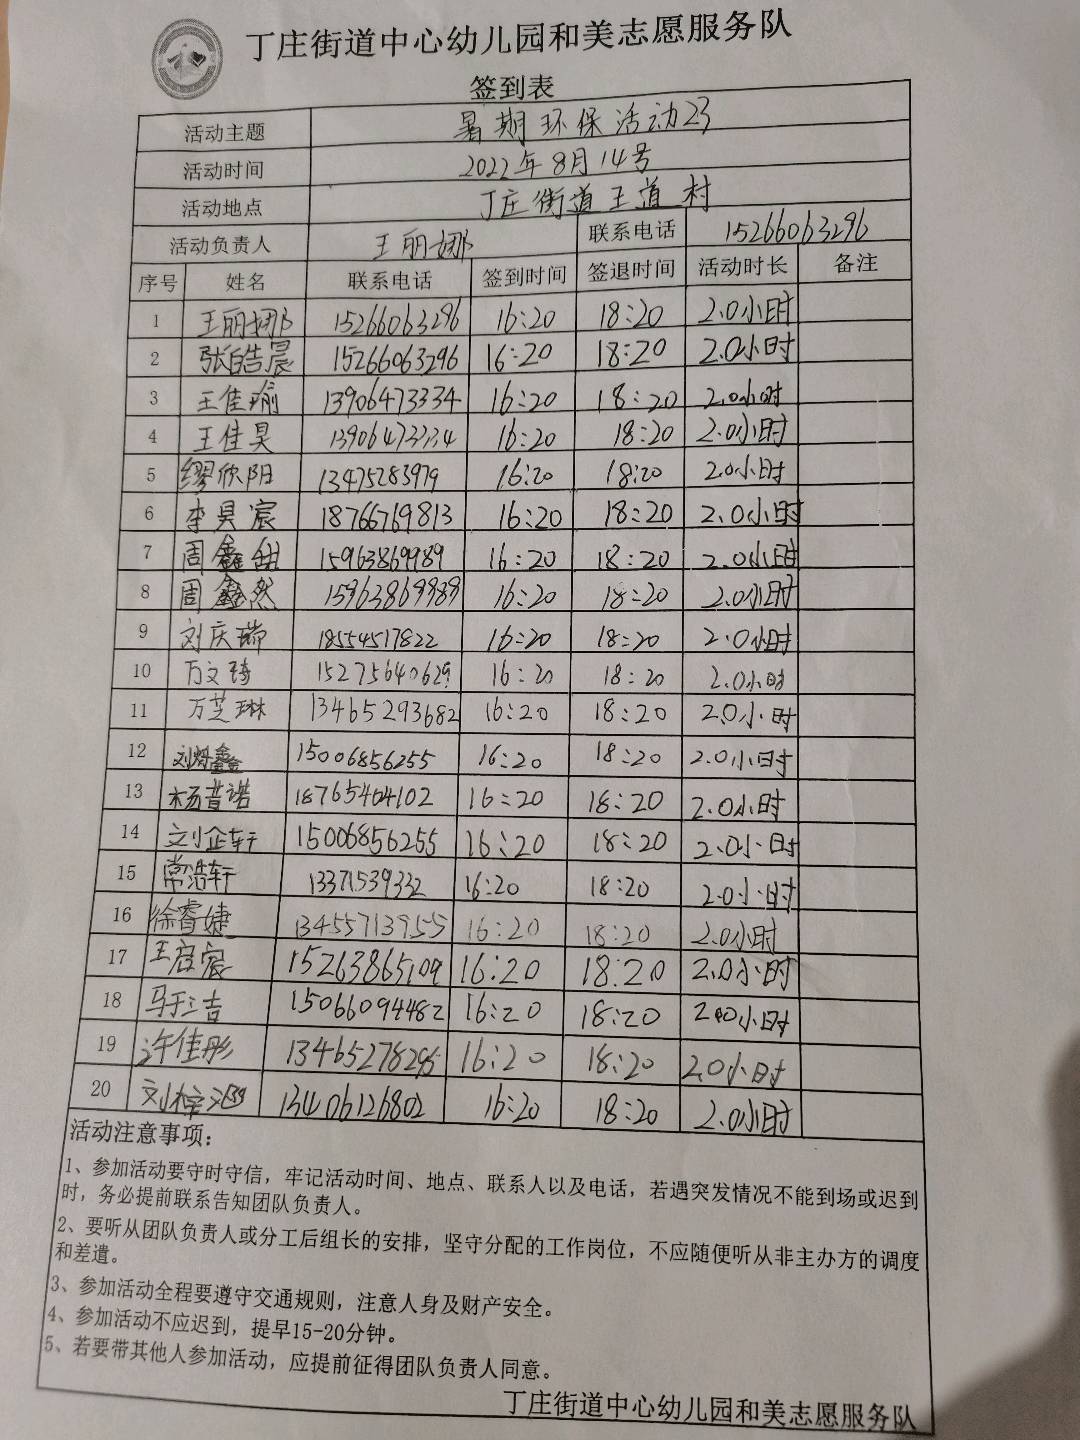 丁庄街道中心幼儿园和美志愿服务队
签到表
活动主题 暑期环保活动23
活动时间 2022年8月14号
活动地点 丁庄街道王道村
活动负责人 王丽娜 联系电话 15266063296
序号 姓名 联系电话 签到时间 签退时间 活动时长 备注
1 王丽娜 15266063296 16:20 18:20 2.0小时
2 张皓晨 15266063296 16:20 18:20 2.0小时
3 王佳瑜 13906473334 16:20 18:20 2.0小时
4 王佳昊 13906473334 16:20 18:20 2.0小时
5 缪欣阳 13475283979 16:20 18:20 2.0小时
6 李昊宸 18766769813 16:20 18:20 2.0小时
7 周鑫甜 15963869989 16:20 18:20 2.0小时
8 周鑫然 15963869989 16:20 18:20 2.0小时
9 刘庆瑞 18554517822 16:20 18:20 2.0小时
10 万文琦 15275640629 16:20 18:20 2.0小时
11 万芝琳 13465293682 16:20 18:20 2.0小时
12 15006856255 16:20 18:20 2.0小时
13 杨昔诺 18765404102 16:20 18:20 2.0小时
14 刘企轩 15006856255 16:20 18:20 2.0小时
15 常浩轩 13371539332 16:20 18:20 2.0小时
16 徐睿婕 134557139555 16:20 18:20 2.0小时
17 王启宸 15263865109 16:20 18:20 2.0小时
18 15066094482 16:20 18:20 2.0小时
19 许佳彤 13465278295 16:20 18:20 2.0小时
20 13406126802 16:20 18:20 2.0小时
活动注意事项：
1、参加活动要守时守信，牢记活动时间、地点、联系人以及电话，若遇突发情况不能到场或迟到
时，务必提前联系告知团队负责人。
2、要听从团队负责人或分工后组长的安排，坚守分配的工作岗位，不应随便听从非主办方的调度
和差遣。
3、参加活动全程要遵守交通规则，注意人身及财产安全。
4、参加活动不应迟到，提早15-20分钟。
5、若要带其他人参加活动，应提前征得团队负责人同意。
丁庄街道中心幼儿园和美志愿服务队